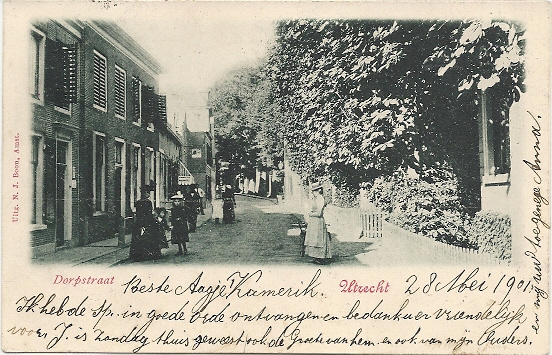 Uitg. N. J. Boon, Amst.
Dorpstraat
Utrecht
28 Mei 1901.
Beste Aagje Kamerik.
Ik heb de in goede orde ontvangen en bedank u er vriendelijk
voor. J. is Zondag thuis geweest ook de Groete van hem en ook van mijn Ouders.
en mij uw toegenege Anna.